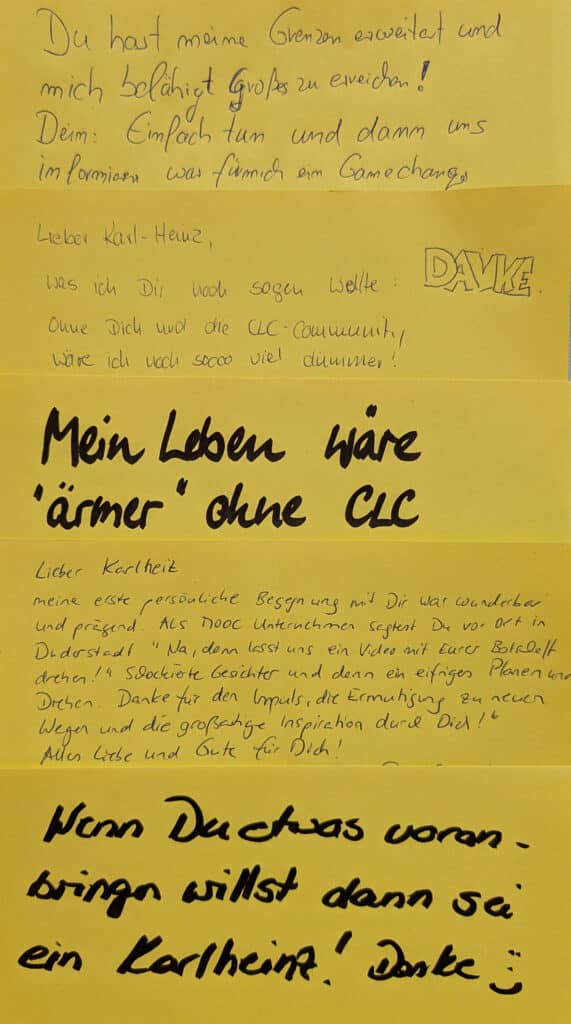 Du hast meine Grenzen erweitert und
mich befähigt Großes zu erreichen!
Dein: Einfach tun und dann uns
informieren war für mich ein Gamechanger
Lieber Karl-Heinz,
DANKE
was ich Dir noch sagen wollte:
Ohne Dich und die CLC-Community
wäre ich noch soooo viel dümmer!
Mein Leben wäre
"ärmer" ohne CLC
Lieber Karlheinz
meine erste persönliche Begegnung mit Dir war wunderbar
und prägend. Als MOOC Unternehmen sagtest Du vor Ort in
Duderstadt "Na, dann lasst uns ein Video mit Eurer Botschaft
drehen!" Schockierte Gesichter und dann ein eifriges Planen und
Drehen. Danke für den Impuls, die Ermutigung zu neuen
Wegen und die großartige Inspiration durch Dich!"
Alles Liebe und Gute für Dich!
Wenn Du etwas voran-
bringen willst dann sei
ein Karlheinz! Danke :)